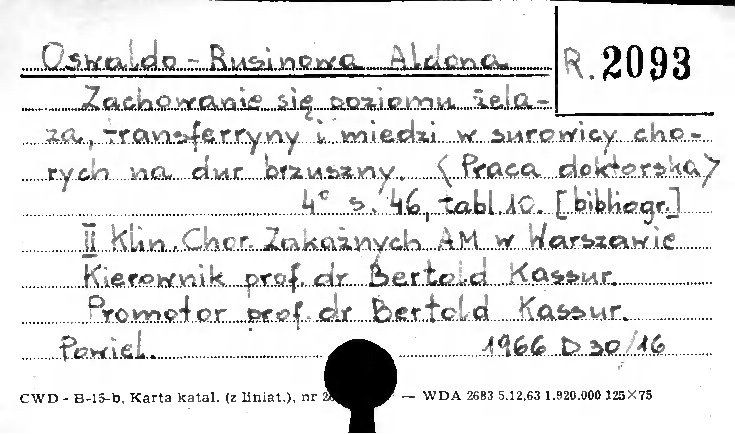 Oswaldo - Rusinowa Aldona
R. 2093
Zachowanie się poziomu żela-
za, transferryny i miedzi w surowicy cho-
rych na dur brzuszny. (Praca doktorska)
4° s. 46, tabl. 10. [bibliogr.]
II Klin. Chor. Zakaźnych AM w Warszawie
Kierownik prof. dr Bertold Kassur.
Promotor prof. dr Bertold Kassur.
Powiel. 1966 D 30/16
CWD - B-15-b, Karta katal. (z liniat.), nr — WDA 2683 5.12.63 1.920.000 125×75